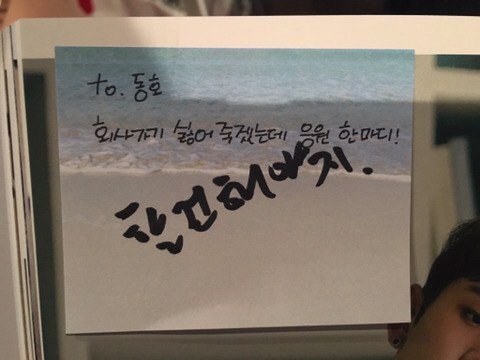 to. 동호
회사가기 싫어 죽겠는데 응원 한마디!
할건해야지.